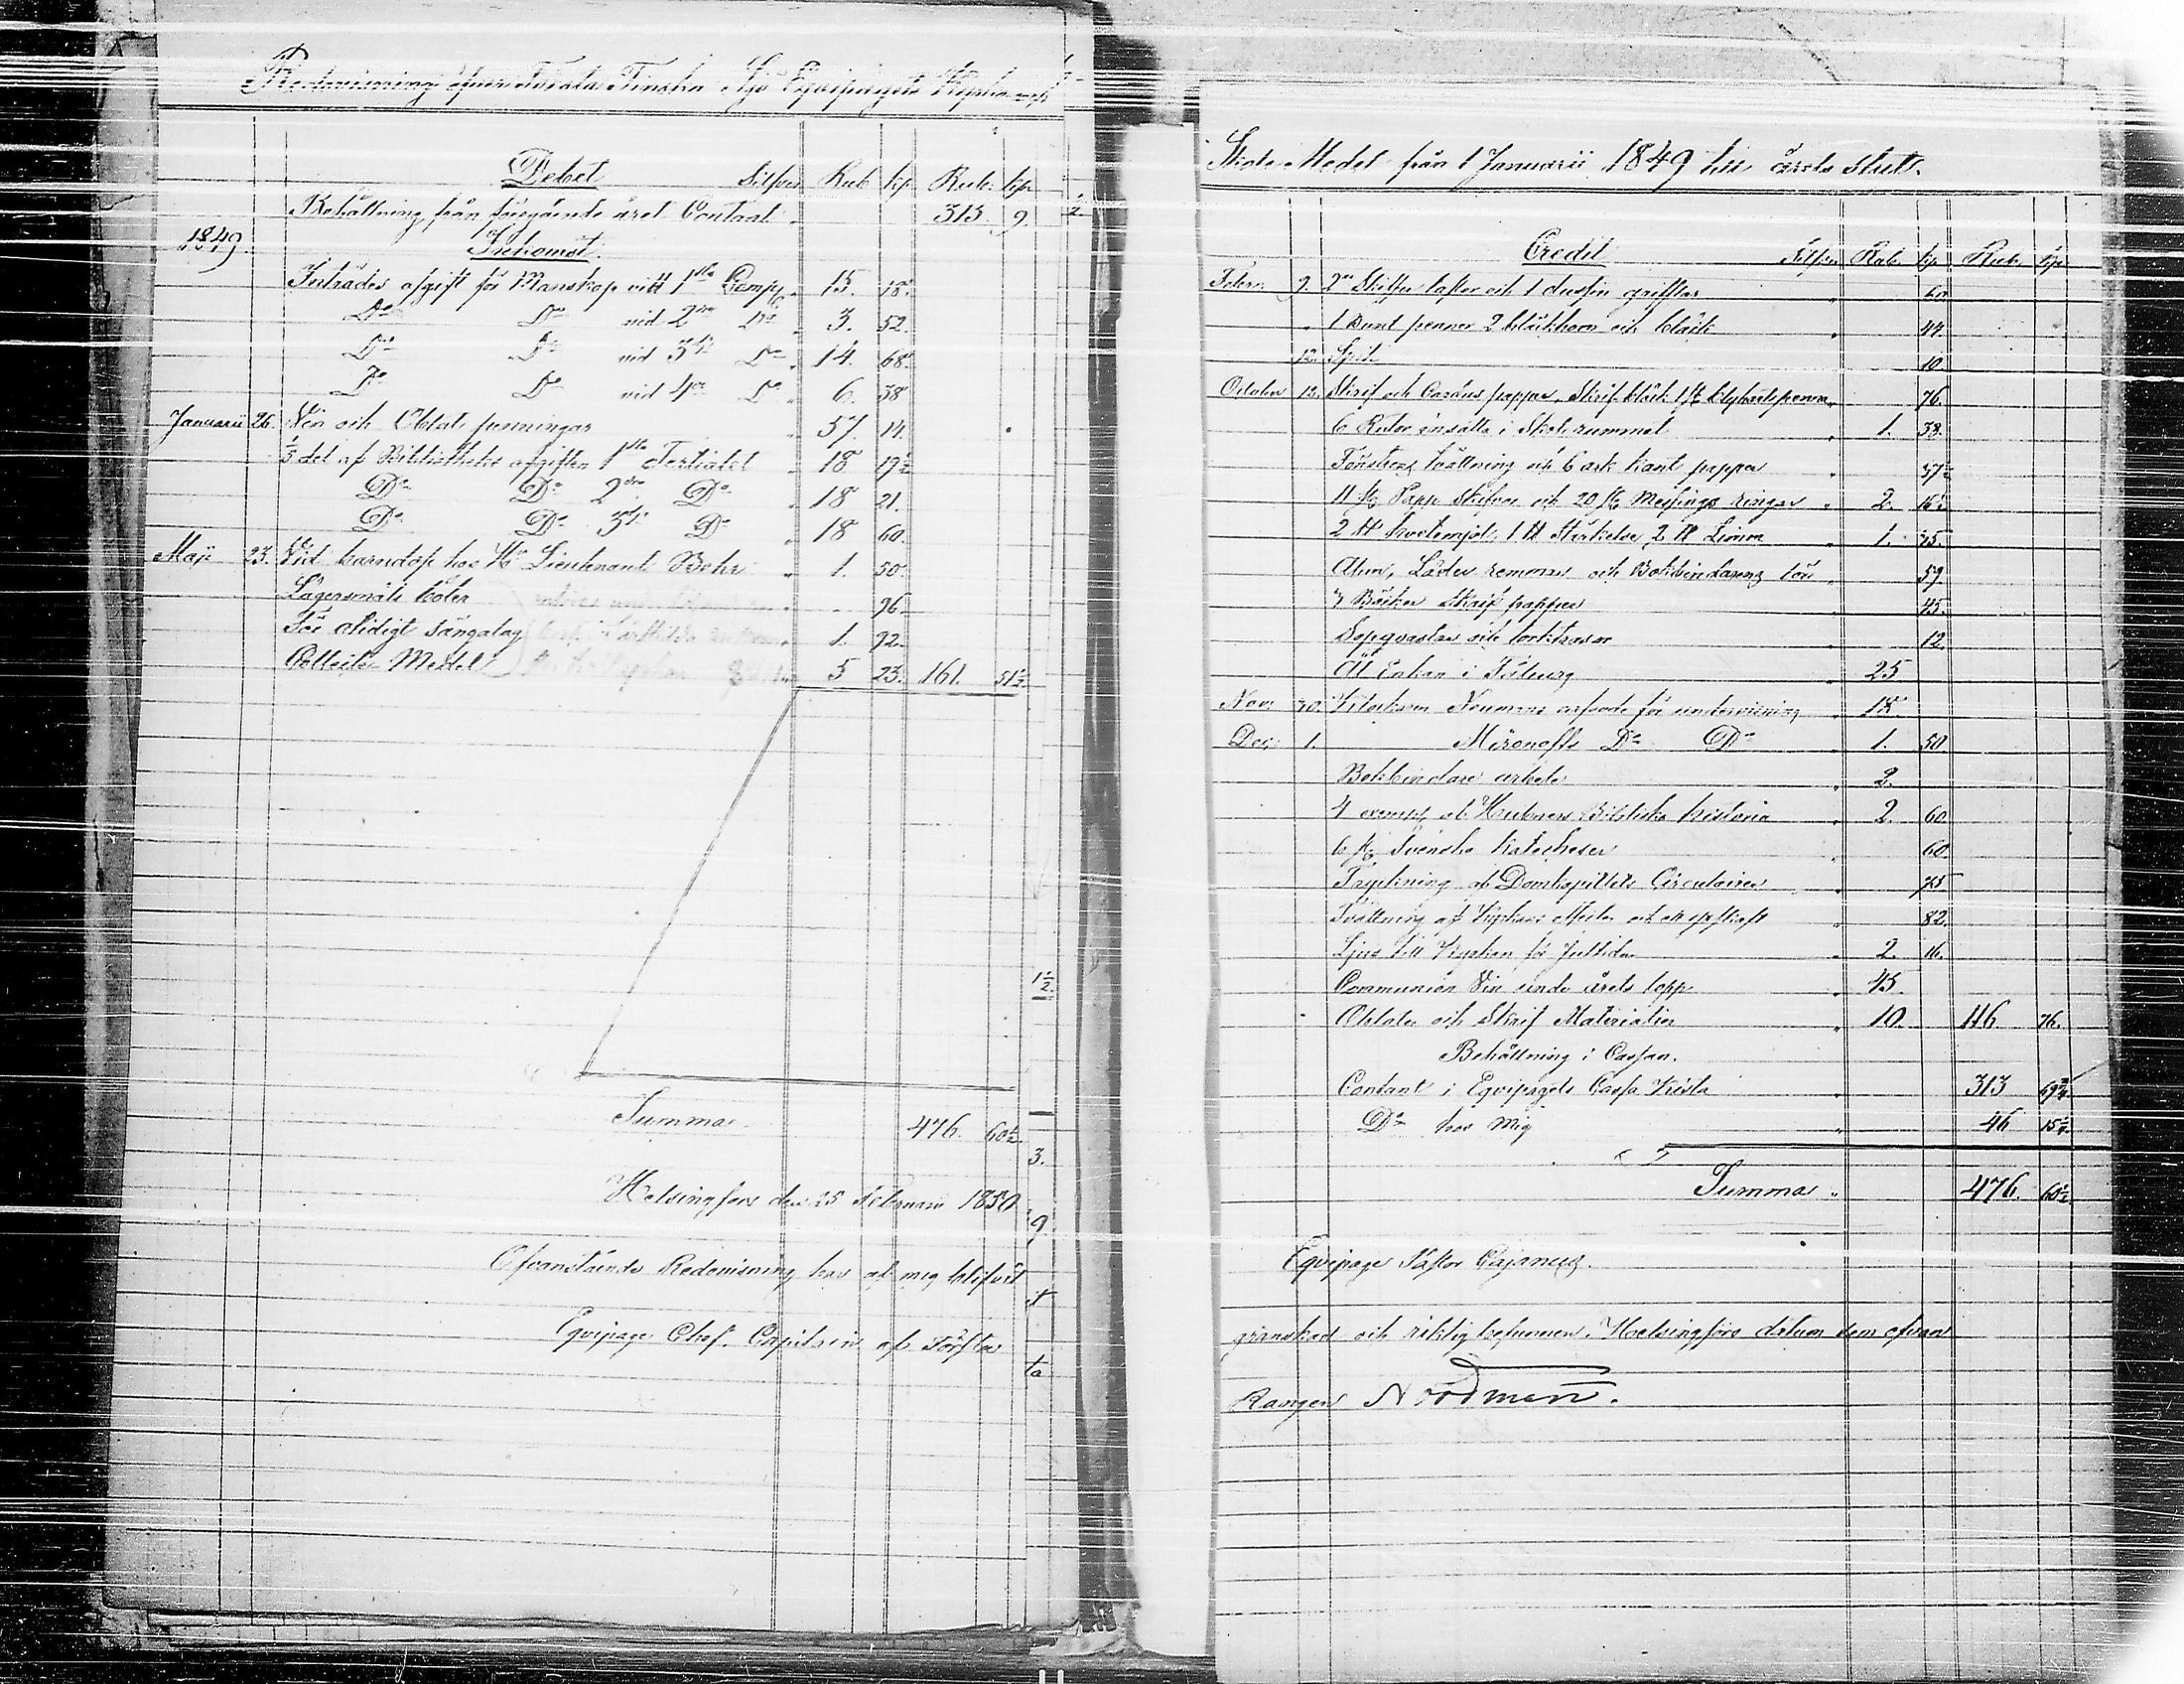 Redovisning öfver Första Finska Sjö Eqvipagets Kyrko och
Debet Silfver Rub. kp. Rub. kp.
Behållning från föregående året Contant 313. 9.
1849. Inkomst.
Inträdes afgift för Manskap vid 1sta Comp. 15. 18.
Do Do vid 2dra Do 3. 52.
Do Do vid 3dje Do 14. 68.
Do Do vid 4de Do 6. 38
Januarii 26. Vin och Oblat penningar 57. 14.
1/3 del af Bibliotheks afgiften 1sta Tertialet 18 19 1/2
Do Do 2dra Do 18 21.
Do Do 3dje Do 18 60.
Maji 23. Vid barndop hos Hr Lieutenant Behr 1. 50.
Lägersmåls böter 96.
För olidigt sängalag 1. 92.
Collecte Medel 5 23. 161. 51 1/2.
Summa 476. 60 1/2.
Helsingfors den 25 Februarii 1850.
Ofvanstående Redovisning har af mig blifvit
Eqvipage Chef. Capitain af Första
1/2
1 1/2.
3.
9.
t
ta
Skole Medel från 1 Januarii 1849 till årets slut.
Credit Silfver Rub. kp. Rub. kp.
Febr. 9. 2ne Skiffer taflor och 1 dussin grifflar 60.
1 Bunt pennor 2 bläckhorn och bläck 44.
12. Spik 10
October 12. Skrif och Cardus papper, Skrif bläck 1 st blyertspenna 76.
6 Rutor insatta i Skole rummet 1. 38.
Fönstrens tvättning och 6 ark kant papper 57 1/2
11 st Papp Skifvor och 20 st Messings ringar 2. 16 1/2
1. 75.
Alun, Läder remmar och Bokbindarens lön 59
Böcker Skrif papper 45.
Sopqvastar och torktrasor 12.
Åt Enkan 25
Nov. 30. Neumans arfvode för undervisning 18.
Dec. 1. Mironoffs Do Do 1. 50.
Bokbindare arbete 2.
4 exempl. af Hübners Bibliska historia 2. 60.
6 st Svenska Katecheser 60.
Tryckning af Domkapitlets Circulairer 75
Tvättning af Kyrkans 82.
Ljus till Kyrkan för Jultiden 2. 16.
Communion Vin under årets lopp 45.
Oblater och Skrif Materialier 10. 116 76.
Behållning i Cassan.
Contant i Eqvipagets Cassa Kista 313 69 1/4
Do hos mig 46 15 1/4
Summa 476. 60 1/2
Eqvipage Pastor Cajanus.
granskad och riktig befunnen. Helsingfors datum som ofvan
Rangen Nordman.